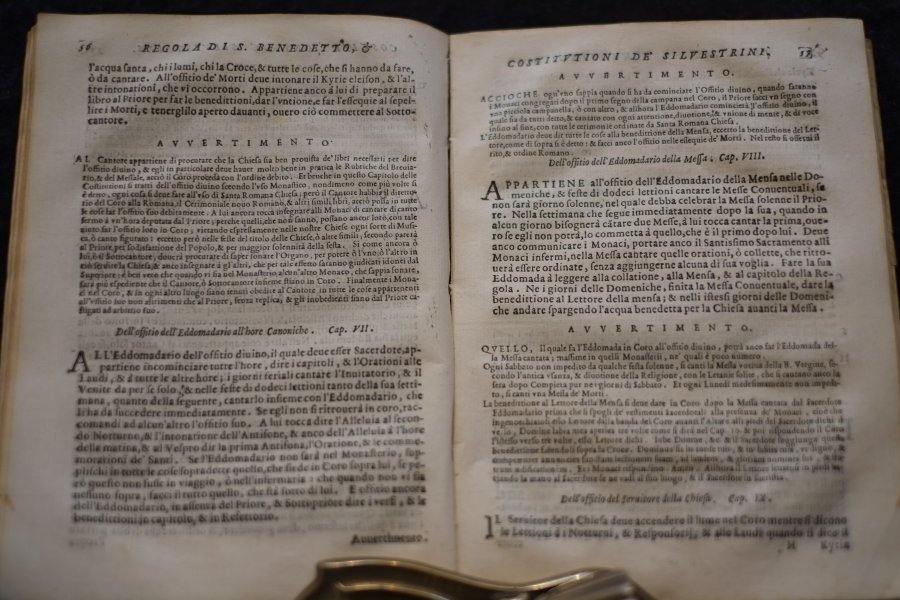 56 REGOLA DI S. BENEDETTO, &
l'acqua santa, chi i lumi, chi la Croce, & tutte le cose, che si hanno da fare,
ò da cantare. All'offitio de' Morti deue intonare il Kyrie eleison, & l'al-
tre intonationi, che vi occorrono. Appartiene anco à lui di preparare il
libro al Priore per far le benedittioni, dar l'vntione, e far l'essequie al sepel-
lire i Morti, e tenerglilo aperto dauanti, ouero ciò commettere al Sotto-
cantore.
AVVERTIMENTO.
AL Cantore appartiene di procurate che la Chiesa sia ben prouista de' libri necessarij per dire
l'offitio diuino, & egli in particolare deue hauer molto bene in pratica le Rubriche del Breuia-
rio, & del Messale, acciò il Coro proceda con l'ordine debito. Et benche in questo Capitolo delle
Costitutioni si tratti dell'offitio diuino secondo l'vso Monastico, nondimeno come più volte si
è detto, ogni cosa si deue fare all'vso di Santa Romana Chiesa, però il Cantore habbia il diretto-
rio del Coro alla Romana, il Cerimoniale nouo Romano, & altri simili libri, acciò possa in tutte
le cose far l'offitio suo debitamente. A lui ancora tocca insegnare alli Monaci di cantare di canto
fermo à vn'hora deputata dal Priore, perche quelli, che nò sanno, possano ancor loro, con tale
aiuto far l'offitio loro in Coro; vietando espressamente nelle nostre Chiese ogni sorte di Musi-
ca, ò canto figurato: eccetto però nelle feste del titolo delle Chiese, ò altre simili, secondo parerà
al Priore, per sodisfattione del Popolo, & per maggior solennità della festa. Si come ancora ò
lui, ò il Sottocantore, douerà procurare di saper sonare l'Organo, per poterè ò l'vno, ò l'altro in
ciò seruire la Chiesa, & anco insegnare à gli altri, che per tale effetto saranno giudicati idonei dal
Superiore: e ben vero che quando vi sia nel Monasterio alcun'altro Monaco, che sappia sonare,
sarà più espediente che il Cantore, ò Sottocantore insieme stiano in Coro. Finalmente i Mona-
ci nel Coro, & in ogni altro luogo siano tenuti obedire al Cantore in tutte le cose appartenenti
all'vfitio suo non altrimenti che al Priore, senza replica; & gli inobedienti siano dal Priore ca-
stigati ad arbitrio suo.
Dell'offitio dell'Eddomadario all'hore Canoniche. Cap. VII.
ALL'Eddomadario dell'offitio diuino, il quale deue esser Sacerdote, ap-
partiene incominciare tutte l'hore, dire i capitoli, & l'Orationi alle
Laudi, & à tutte le altre hore; i giorni feriali cantare l'Inuitatorio, & il
Venite da per se solo, & nelle feste di dodeci lettioni tanto della sua setti-
mana, quanto della seguente, cantarlo insieme con l'Eddomadario, che
li ha da succedere immediatamente. Se egli non si ritrouerà in coro, rac-
comandi ad alcun'altro l'offitio suo. A lui tocca dire l'Alleluia al secon-
do Notturno, & l'intonatione dell'Antifone, & anco dell'Alleluia à l'hore
della matina, & al Vespro dir la prima Antifona, l'Oratione, & le comme-
morationi de' Santi. Se l'Eddomadario non sarà nel Monasterio, sup-
plischi in tutte le cose sopradette quello, che siede in Coro sopra lui, se pe-
rò questo non fusse in viaggio, ò nell'infermaria: che quando non vi sia
nessuno sopra, facci il tutto quello, che stà sotto di lui. E offitio ancora
dell'Eddomadario, in assenza del Priore, & Sottopriore dire i versi, & le
benedittioni in capitolo, & in Refettorio.
Auuertimento.
COSTITVTIONI DE' SILVESTRINI. 57
AVVERTIMENTO.
ACCIOCHE ogn'vno sappia quando si ha da cominciare l'Offitio diuino, quando saranno
i Monaci congregati dopo il primo segno della campana nel Coro, il Priore facci vn segno con
vna piccola campanella, ò con altro, & allhora l'Eddomadario comincierà l'offitio diuino, il
quale sia da tutti detto, & cantato con ogni attentione, diuotione, & vnione di mente, & di voce
insino al fine, con tutte le cerimonie ordinate da Santa Romana Chiesa.
L'Eddomadario deue dit tutte le cose alla benedittione della Mensa, eccetto la benedittione del Let-
tore, come di sopra si è detto: & facci anco l'offitio nelle essequie de' Morti. Nel resto si osserui il
rito, & ordine Romano.
Dell'offitio dell'Eddomadario della Messa. Cap. VIII.
APPARTIENE all'offitio dell'Eddomadario della Mensa nelle Do-
meniche, & feste di dodeci lettioni cantare le Messe Conuentuali, se
non sarà giorno solenne, nel quale debba celebrar la Messa solenne il Prio-
re. Nella settimana che segue immediatamente dopo la sua, quando in
alcun giorno bisognerà cātare due Messe, à lui tocca cantar la prima, oue-
ro se egli non potrà, lo commetta à quello, che è il primo dopo lui. Deue
anco communicare i Monaci, portare anco il Santissimo Sacramento alli
Monaci infermi, nella Messa cantare quelle orationi, ò collette, che ritro-
uerà essere ordinate, senza aggiungerne alcuna di sua voglia. Fare la sua
Eddomada à leggere alla collatione, alla Mensa, & al capitolo della Re-
gola. Ne i giorni delle Domeniche, finita la Messa Conuentuale, dare la
benedittione al Lettore della mensa; & nelli istessi giorni delle Domeni-
che andare spargendo l'acqua benedetta per la Chiesa auanti la Messa.
AVVERTIMENTO.
QVELLO, il quale fa l'Eddomada in Coro all'offitio diuino, potrà anco far l'Eddomada del-
la Messa cantata; massime in quelli Monasterij, ne' quali è poco numero.
Ogni Sabbato non impedito da qualche festa solenne, si canti la Messa votiua della B. Vergine, se-
condo l'antica vsanza, & diuotione della Religione, con le Letanie solite, che si cantano anco la
sera dopo Completa pur ne i giorni di Sabbato. Et ogni Lunedì medesimamente non impedi-
to, si canti vna Messa de' Morti.
La benedittione al Lettore della Mensa si deue dare in Coro dopo la Messa cantata dal Sacerdote
Eddomadario prima che si spogli de' vestimenti Sacerdotali alla presenza de' Monaci, cioè che
ingenocchiatosi esso Lettore dalla banda del Coro auanti l'Altare
Dell'offitio del Seruitore della Chiesa. Cap. IX.
IL Seruitor della Chiesa deue accendere il lume nel Coro mentre si dicono
le Lettioni di i Notturni, & Responsorij; & alle Laudi quando si dice il
H Kyrie